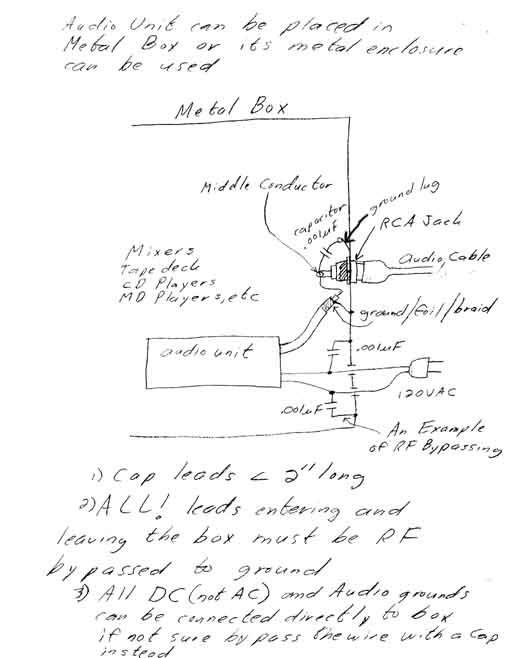 Audio Unit can be placed in
Metal Box or its metal enclosure
can be used
Metal Box
Middle Conductor
capacitor
.001uF
ground lug
RCA Jack
Audio, Cable
Mixers
Tape deck
CD Players
MD Players, etc
ground/foil/braid
audio unit
.001uF
120VAC
.001uF
An Example
of RF Bypassing
1) Cap leads < 2" long
2) ALL! leads entering and
leaving the box must be RF
bypassed to ground
3) All DC (not AC) and Audio grounds
can be connected directly to box
if not sure bypass the wire with a cap
instead